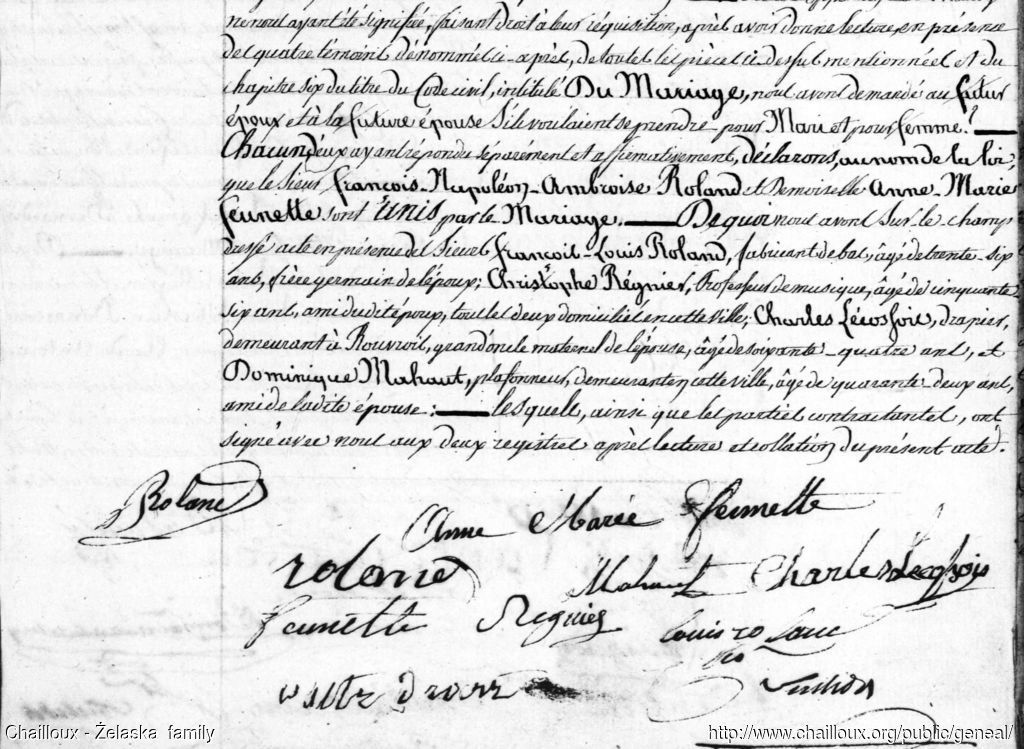 ne nous ayant été signifiée, faisant droit à leur réquisition, après avoir donné lecture, en présence
des quatre temoins dénommés ci-après, de toutes les pièces ci-dessus mentionnées et du
chapitre six du titre du Code civil, intitulé Du Mariage, nous avons demandé au futur
époux et à la future épouse S'ils voulaient se prendre pour Mari et pour femme?
Chacun d'eux ayant répondu séparément et affirmativement, déclarons, au nom de la loi
que le Sieur François-Napoléon-Ambroise Roland et Demoiselle Anne Marie
Jeunette sont Unis par le Mariage. De quoi nous avons sur-le champ
dressé acte en présence des Sieurs François-Louis Roland, fabricant de bas, âgé de trente-six
ans, frère germain de l'époux; Christophe Régnier, Professeur de musique, âgé de cinquante
six ans, ami dudit époux, tous les deux domiciliés en cette Ville; Charles Lécosfois, drapier,
demeurant à Rouvrois, grand oncle maternel de l'épouse, âgé de soixante-quatre ans, et
Dominique Mahaut, plafonneur, demeurant en cette ville, âgé de quarante-deux ans,
ami de ladite épouse: lesquels, ainsi que les parties contractantes, ont
signé avec nous aux deux registres après lecture et collation du présent acte.
Rolane
Anne Marie Jeunette
rolane
Mahaut Charles
Jeunette Regnier
Louis
Chailloux - Żelaska family
http://www.chailloux.org/public/geneal/